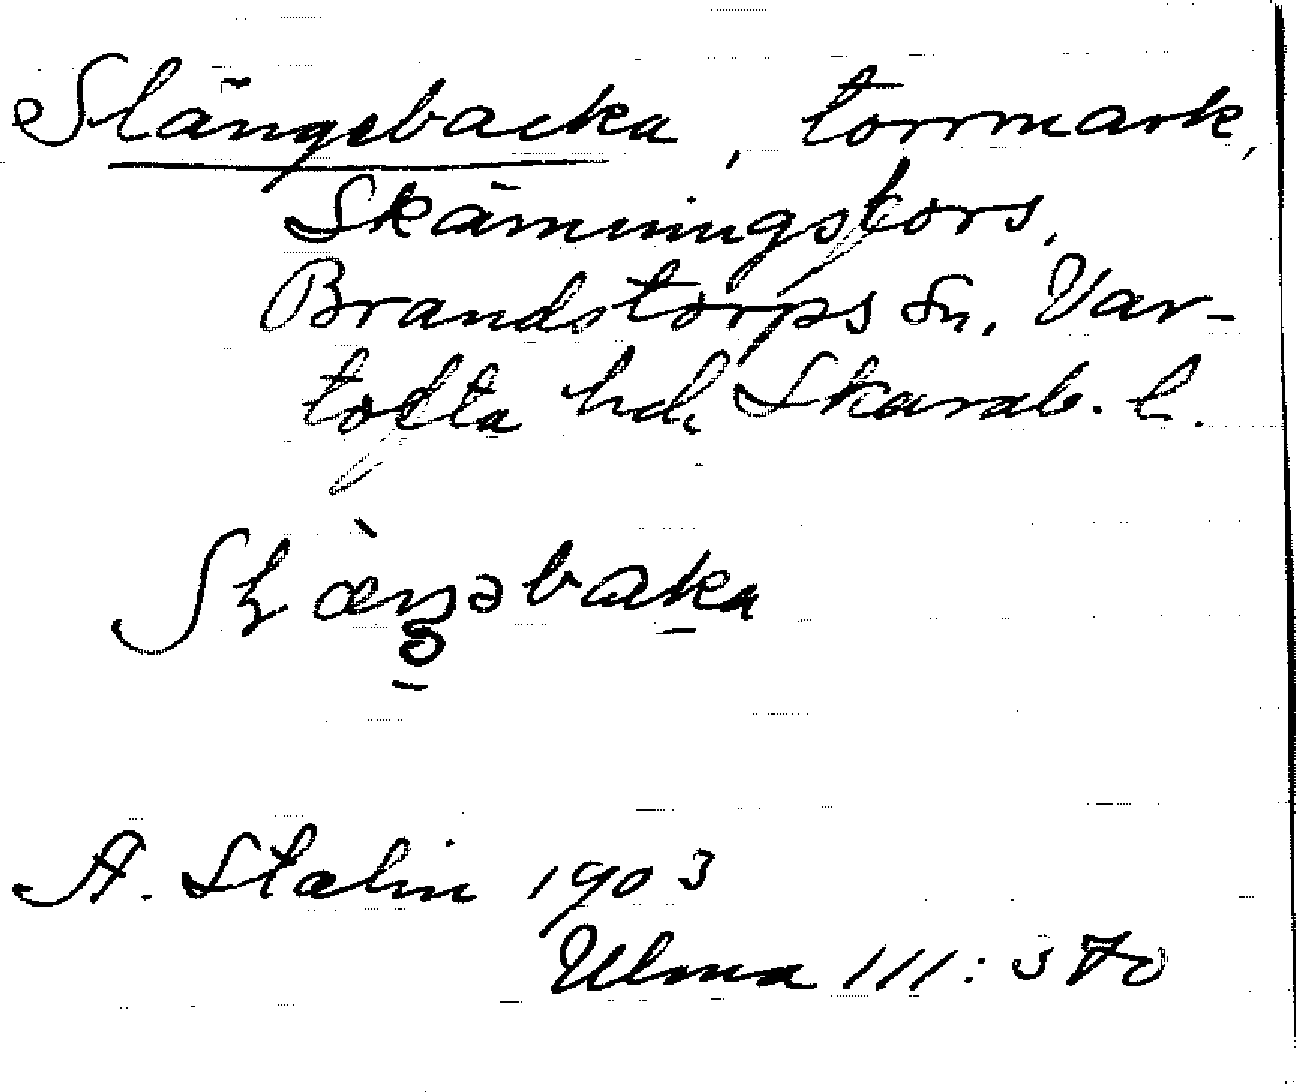 Slängebacka, torrmark,
Skämningsfors,
Brandstorps sn, Var-
tofta hd, Skarab. l.
A. Stalin 1903
Ulma 111: 370